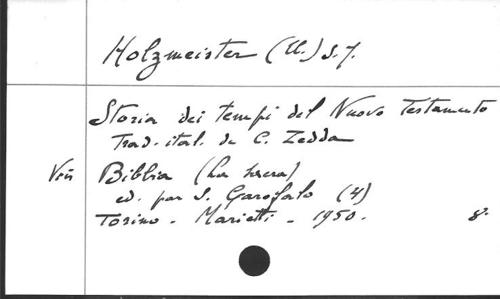 Holzmeister (U.) S.J.
Storia dei tempi del Nuovo Testamento
Trad. ital. da C. Zedda
Biblia (La sacra)
ed. par S. Garofalo (4)
Torino - Marietti - 1950. 8°